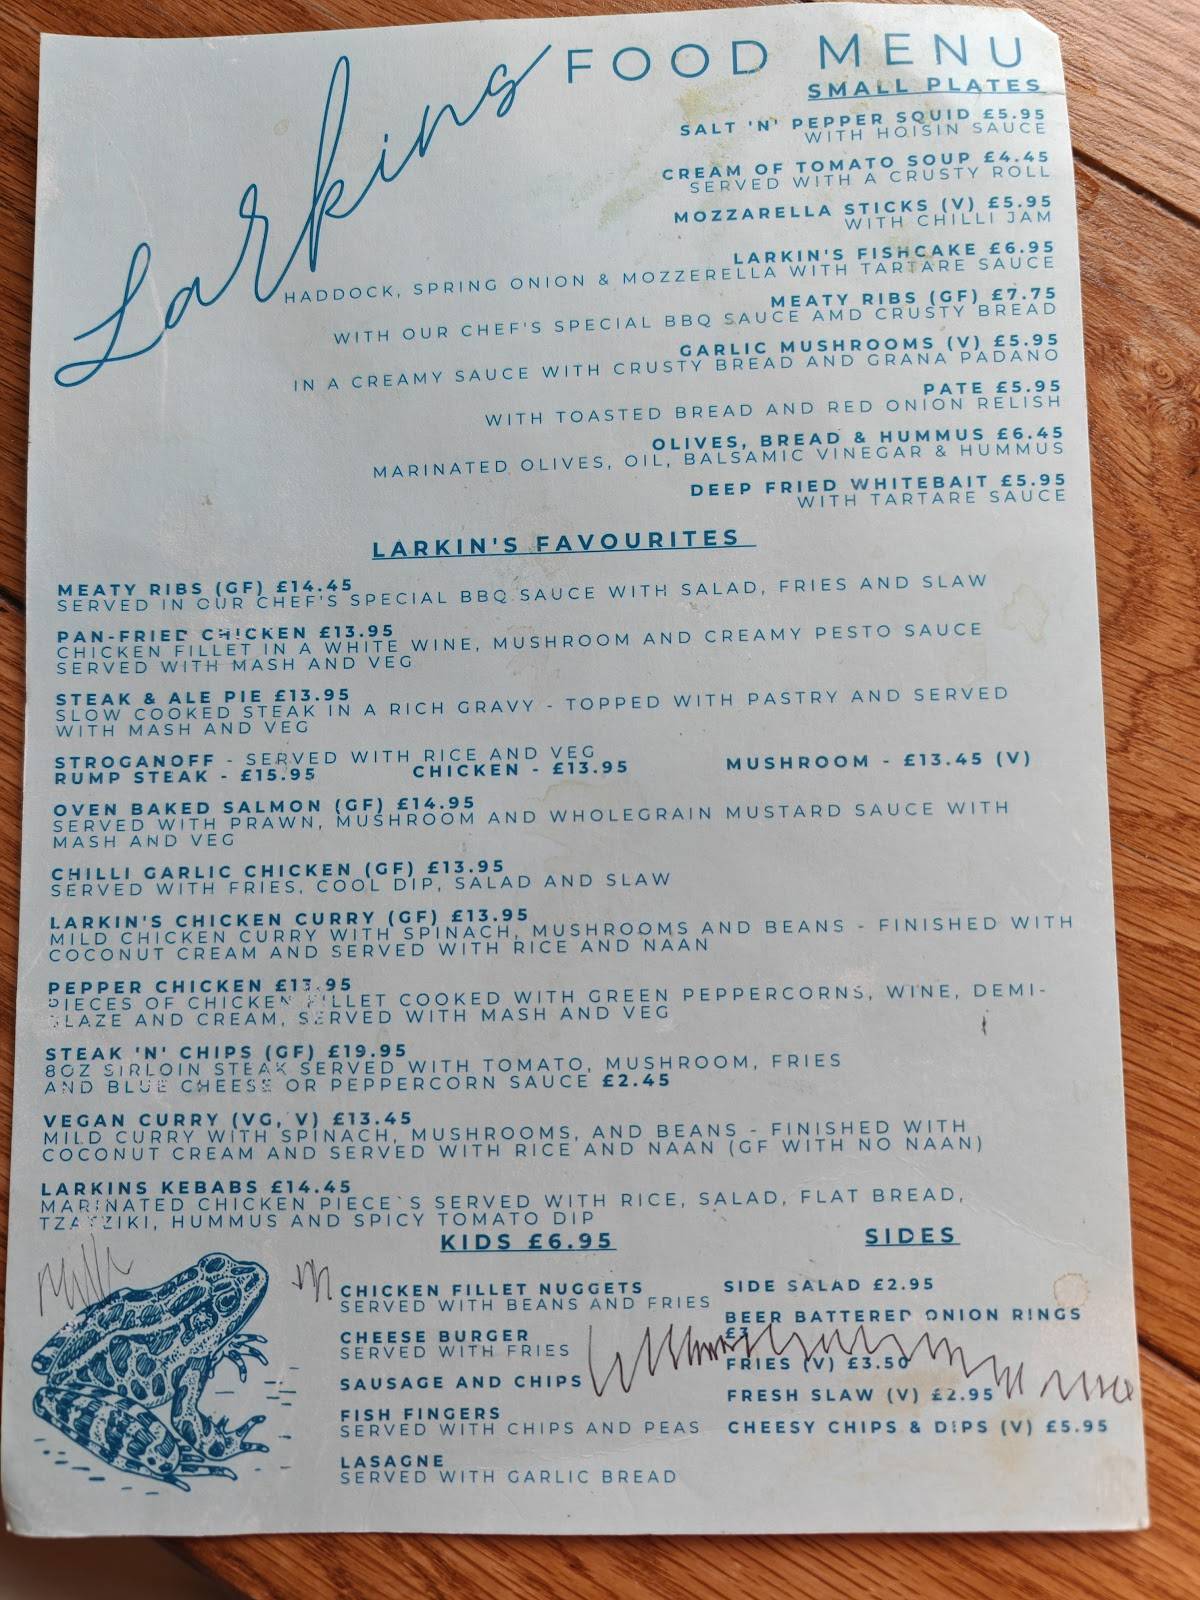 Larkins FOOD MENU
SMALL PLATES
SALT 'N' PEPPER SQUID £5.95
WITH HOISIN SAUCE
CREAM OF TOMATO SOUP £4.45
SERVED WITH A CRUSTY ROLL
MOZZARELLA STICKS (V) £5.95
WITH CHILLI JAM
LARKIN'S FISHCAKE £6.95
HADDOCK, SPRING ONION & MOZZERELLA WITH TARTARE SAUCE
MEATY RIBS (GF) £7.75
WITH OUR CHEF'S SPECIAL BBQ SAUCE AMD CRUSTY BREAD
GARLIC MUSHROOMS (V) £5.95
IN A CREAMY SAUCE WITH CRUSTY BREAD AND GRANA PADANO
PATE £5.95
WITH TOASTED BREAD AND RED ONION RELISH
OLIVES, BREAD & HUMMUS £6.45
MARINATED OLIVES, OIL, BALSAMIC VINEGAR & HUMMUS
DEEP FRIED WHITEBAIT £5.95
WITH TARTARE SAUCE
LARKIN'S FAVOURITES
MEATY RIBS (GF) £14.45
SERVED IN OUR CHEF'S SPECIAL BBQ SAUCE WITH SALAD, FRIES AND SLAW
PAN-FRIED CHICKEN £13.95
CHICKEN FILLET IN A WHITE WINE, MUSHROOM AND CREAMY PESTO SAUCE
SERVED WITH MASH AND VEG
STEAK & ALE PIE £13.95
SLOW COOKED STEAK IN A RICH GRAVY - TOPPED WITH PASTRY AND SERVED
WITH MASH AND VEG
STROGANOFF - SERVED WITH RICE AND VEG
RUMP STEAK - £15.95 CHICKEN - £13.95 MUSHROOM - £13.45 (V)
OVEN BAKED SALMON (GF) £14.95
SERVED WITH PRAWN, MUSHROOM AND WHOLEGRAIN MUSTARD SAUCE WITH
MASH AND VEG
CHILLI GARLIC CHICKEN (GF) £13.95
SERVED WITH FRIES, COOL DIP, SALAD AND SLAW
LARKIN'S CHICKEN CURRY (GF) £13.95
MILD CHICKEN CURRY WITH SPINACH, MUSHROOMS AND BEANS - FINISHED WITH
COCONUT CREAM AND SERVED WITH RICE AND NAAN
PEPPER CHICKEN £13.95
PIECES OF CHICKEN FILLET COOKED WITH GREEN PEPPERCORNS, WINE, DEMI-
GLAZE AND CREAM, SERVED WITH MASH AND VEG
STEAK 'N' CHIPS (GF) £19.95
8OZ SIRLOIN STEAK SERVED WITH TOMATO, MUSHROOM, FRIES
AND BLUE CHEESE OR PEPPERCORN SAUCE £2.45
VEGAN CURRY (VG, V) £13.45
MILD CURRY WITH SPINACH, MUSHROOMS, AND BEANS - FINISHED WITH
COCONUT CREAM AND SERVED WITH RICE AND NAAN (GF WITH NO NAAN)
LARKINS KEBABS £14.45
MARINATED CHICKEN PIECE`S SERVED WITH RICE, SALAD, FLAT BREAD,
TZATZIKI, HUMMUS AND SPICY TOMATO DIP
KIDS £6.95
CHICKEN FILLET NUGGETS
SERVED WITH BEANS AND FRIES
CHEESE BURGER
SERVED WITH FRIES
SAUSAGE AND CHIPS
FISH FINGERS
SERVED WITH CHIPS AND PEAS
LASAGNE
SERVED WITH GARLIC BREAD
SIDES
SIDE SALAD £2.95
BEER BATTERED ONION RINGS
FRIES (V) £3.50
FRESH SLAW (V) £2.95
CHEESY CHIPS & DIPS (V) £5.95